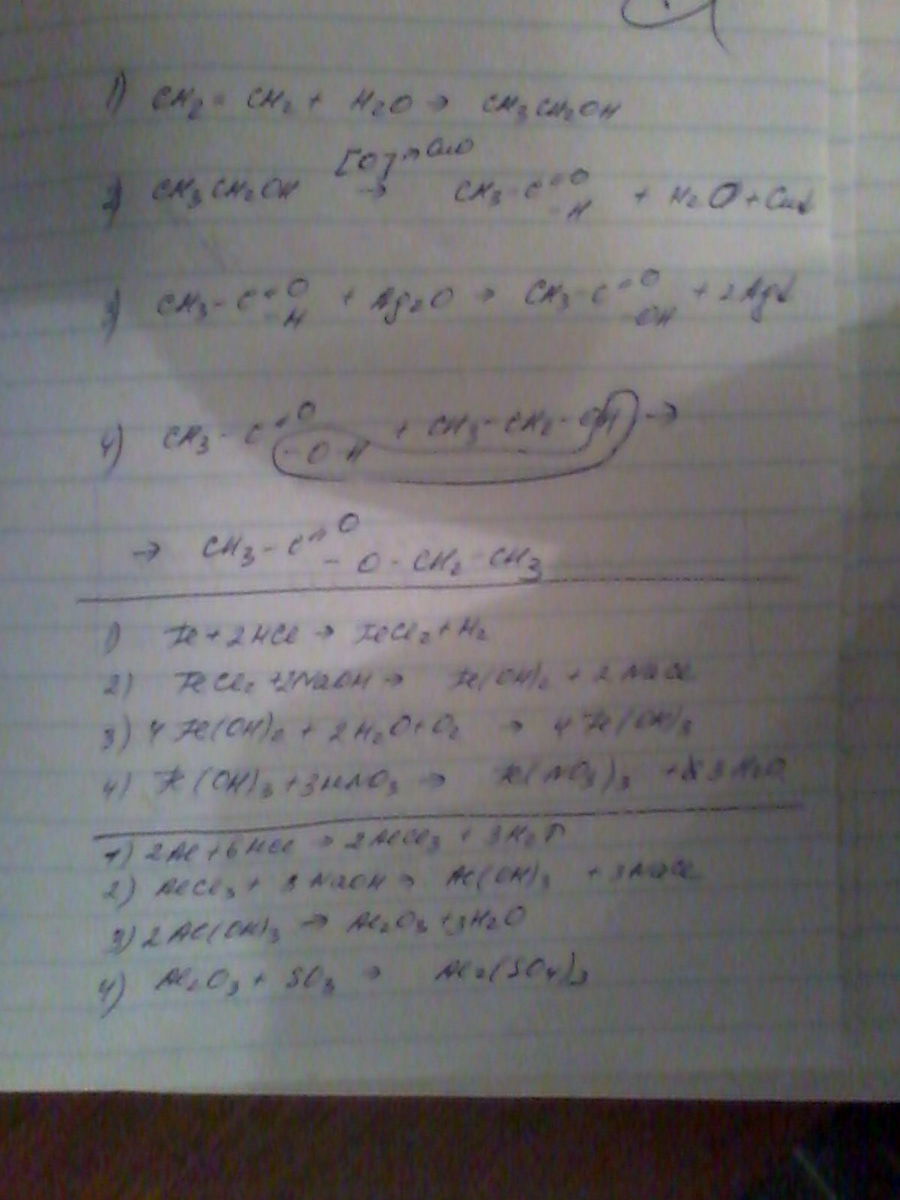 1) CH2 = CH2 + H2O → CH3CH2OH
[O] CuO
2) CH3CH2OH → CH3-C=O -H + H2O + Cu↓
3) CH3-C=O -H + Ag2O → CH3-C=O -OH + 2Ag↓
4) CH3-C=O -O-H + CH3-CH2-OH →
→ CH3-C=O -O-CH2-CH3
1) Fe + 2HCl → FeCl2 + H2
2) FeCl2 + 2NaOH → Fe(OH)2 + 2NaCl
3) 4Fe(OH)2 + 2H2O + O2 → 4Fe(OH)3
4) Fe(OH)3 + 3HNO3 → Fe(NO3)3 + 3H2O
1) 2Al + 6HCl → 2AlCl3 + 3H2↑
2) AlCl3 + 3NaOH → Al(OH)3 + 3NaCl
3) 2Al(OH)3 → Al2O3 + 3H2O
4) Al2O3 + SO3 → Al2(SO4)3